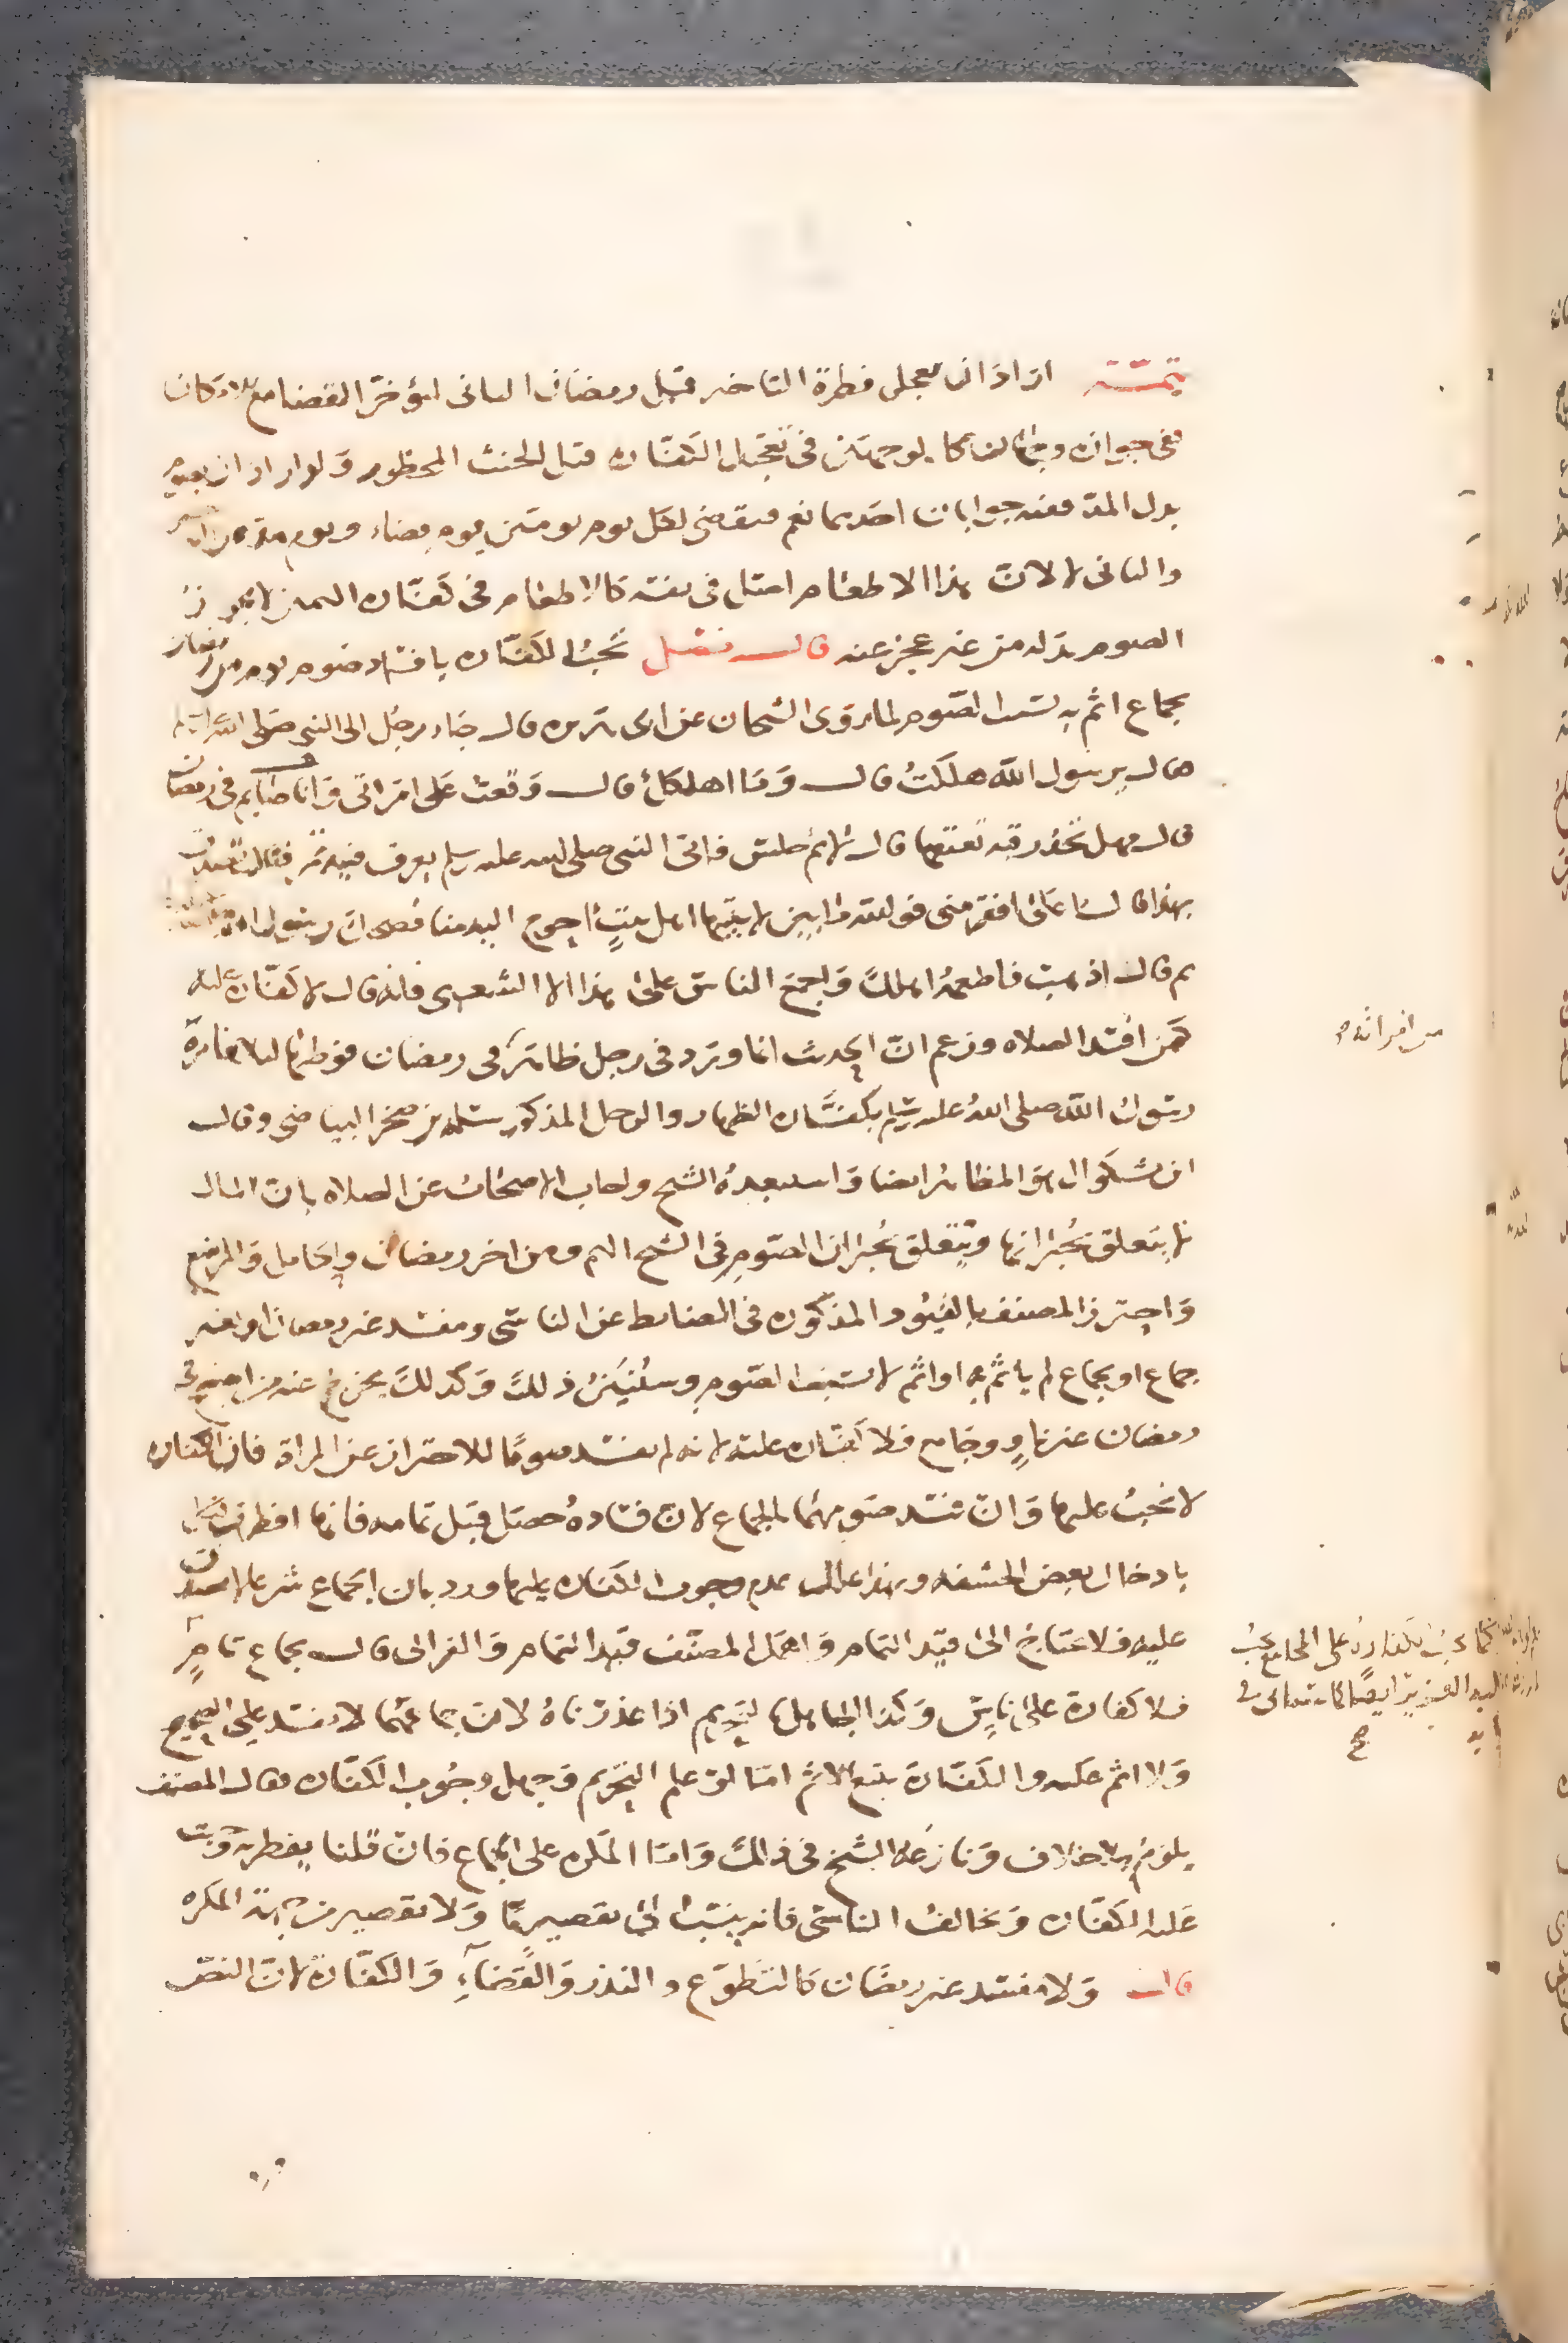 تتمة اذا اراد ان يعجل فطرة التاخير قبل رمضان الثاني ليؤخر القضا مع الامكان
ففي جوازه وجهان كالوجهين في تعجيل الكفاره قبل الحنث المحظور ولو اراد ان يصوم
بدل المد فعنه جوابان احدهما نعم فيقضي لكل يوم يومين يوم قضاء ويوم
والثاني لا لان هذا الاطعام اصل في نفسه كالاطعام في كفاره اليمين لا يجوز
الصوم بدله من غير عجز عنه قال فصل تجب الكفاره بافساد صوم يوم من رمضان
بجماع اثم به بسبب الصوم لما روى الشيخان عن ابي هريره قال جاء رجل الى النبي صلى الله
فقال يرسول الله هلكت قال وما اهلكك قال وقعت على امراتي وانا صايم في رمضان
قال فهل تجد رقبه تعتقها قال لا ثم جلس فاتى النبي صلى الله عليه وسلم بعرق فيه تمر فقال تصدق
بهذا قال اعلى افقر مني فوالله ما بين لابتيها اهل بيت احوج اليه منا فضحك رسول الله
ثم قال اذهب فاطعمه اهلك واجمع الناس على هذا الا الشعبي فانه قال لا كفاره عليه
كمن افسد الصلاه وزعم ان الحديث انما ورد في رجل ظاهر في رمضان فوطئها ليلا فامره
رسول الله صلى الله عليه وسلم بكفاره الظهار والرجل المذكور سلمه بن صخر البياضي وقال
ابن بشكوال هو المظاهر ايضا واستبعده الشيخ واجاب الاصحاب عن الصلاه بان المال
لا يتعلق بجبرانها ويتعلق بجبران الصوم في الشيخ الهم ومن اخر رمضان والحامل والمرضع
واحترز المصنف بالقيود المذكوره في الضابط عن الناسي ومفسد غير رمضان او بغير
جماع او بجماع لم ياثم به او اثم لا بسبب الصوم وسنبين ذلك وكذلك يحترز عنه من اصبح في
رمضان غير ناو وجامع فلا كفاره عليه لانه لم يفسد صوما للاحتراز عن المراة فان الكفاره
لا تجب عليها وان فسد صومها بالجماع لان فساده حصل قبل تمامه فانها افطرت
بادخال بعض الحشفه وبهذا علل عدم وجوب الكفاره عليها ورد بان الجماع شرعا لا يصدق
عليه فلا حتاج الى قيد التمام واهمل المصنف قيد التمام والغزالي قال بجماع تام
فلا كفارة على ناس وكذا الجاهل لتحريم اذا عذرناه لان جماعهما لا يفسد على الصحيح
ولا اثم عليه والكفارة تتبع الاثم اما لو علم التحريم وجهل وجوب الكفاره فقال المصنف
يلزمه بلا خلاف ونازعه الشيخ في ذلك واما المكره على الجماع فان قلنا يفطر به وجبت
عليه الكفاره ويخالف الناسي فانه ينسب الى تقصير ما ولا تقصير من جهة المكره
قال ولا مفسد غير رمضان كالتطوع والنذر والقضاء والكفارة لان النص
من امراته
كما تجب الكفارة على المجامع تجب
التعزير ايضا كما سياتي في
صح